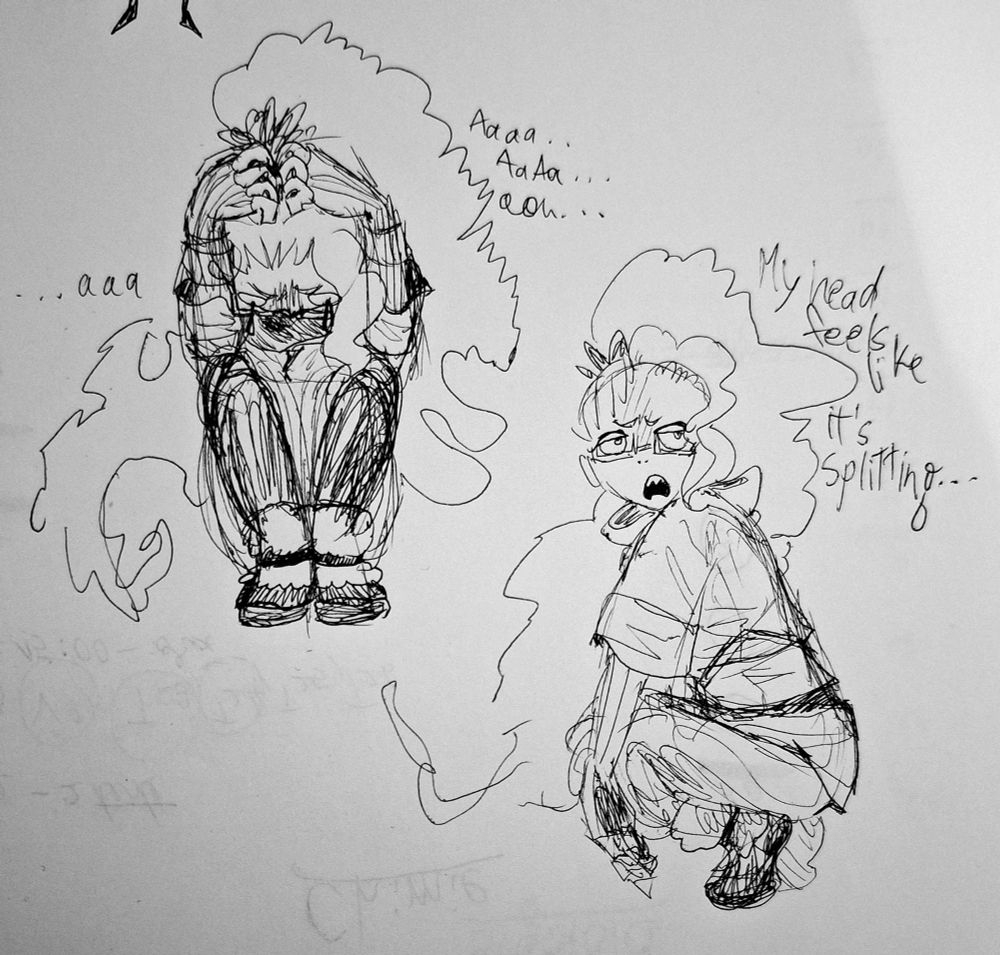 Aaaa..
AaAa...
aoh...
...aaa
My head
feels
like
it's
splitting...